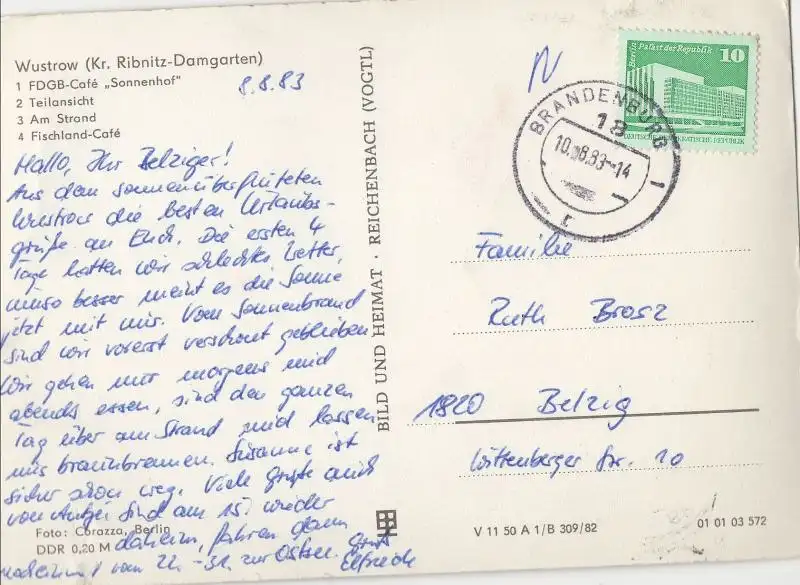 Wustrow (Kr. Ribnitz-Damgarten)
1 FDGB-Café „Sonnenhof"
2 Teilansicht
3 Am Strand
4 Fischland-Café
8.8.83
Hallo, Ihr Belziger!
Aus dem sonnenüberfluteten
Wustrow die besten Urlaubs-
grüße an Euch. Die ersten 4
Tage hatten wir schlechtes Wetter,
umso besser meint es die Sonne
jetzt mit mir. Vom Sonnenbrand
sind wir vorerst verschont geblieben
Wir gehen nur morgens und
abends essen, sind den ganzen
Tag über am Strand und lassen
uns braunbrennen. Susanne ist
sicher schon weg. Viele Grüße auch
von Antje. Sind am 15. wieder
daheim, fahren dann
vom 22. - 31. zur Ostsee. Gruß
Elfriede
Foto: Corazza, Berlin
DDR 0,20 M
BILD UND HEIMAT · REICHENBACH (VOGTL)
N
Berlin Palast der Republik
10
DEUTSCHE DEMOKRATISCHE REPUBLIK
BRANDENBURG 1
18
10.-8.83-14
r
Familie
Ruth Brosz
1820 Belzig
Wittenberger Str. 10
V 11 50 A 1/B 309/82
01 01 03 572